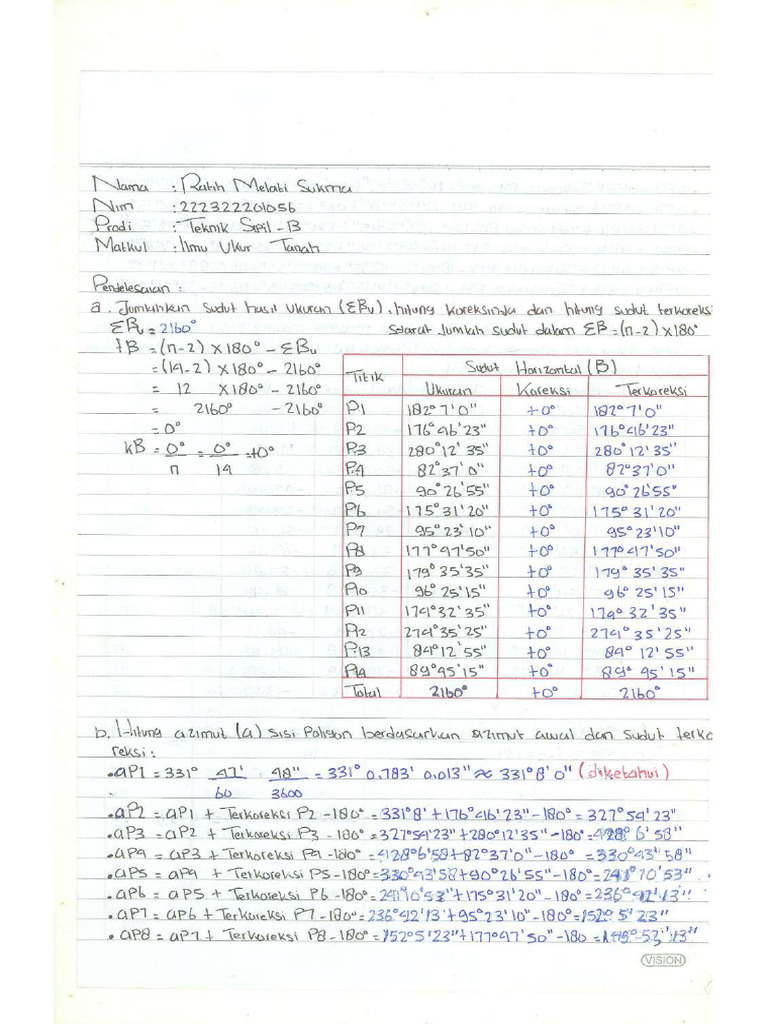 Nama : Ratih Melati Sukma
Nim : 222322201056
Prodi : Teknik Sipil - B
Matkul : Ilmu Ukur Tanah
Penyelesaian :
a. Jumlahkan sudut hasil Ukuran (ΣBu), hitung koreksinya dan hitung sudut terkoreksi
ΣBu = 2160° Syarat Jumlah sudut dalam ΣB = (n-2) x 180°
fB = (n-2) x 180° - ΣBu
= (14-2) x 180° - 2160°
= 12 x 180° - 2160°
= 2160° - 2160°
= 0°
kB = 0°/n = 0°/14 = +0°
Titik Sudut Horizontal (B)
Ukuran Koreksi Terkoreksi
P1 182°7'0" +0° 182°7'0"
P2 176°46'23" +0° 176°46'23"
P3 280°12'35" +0° 280°12'35"
P4 82°37'0" +0° 82°37'0"
P5 90°26'55" +0° 90°26'55"
P6 175°31'20" +0° 175°31'20"
P7 95°23'10" +0° 95°23'10"
P8 177°47'50" +0° 177°47'50"
P9 179°35'35" +0° 179°35'35"
P10 96°25'15" +0° 96°25'15"
P11 174°32'35" +0° 174°32'35"
P12 274°35'25" +0° 274°35'25"
P13 84°12'55" +0° 84°12'55"
P14 89°45'15" +0° 89°45'15"
Total 2160° +0° 2160°
b. Hitung azimut (a) sisi Poligon berdasarkan azimut awal dan sudut terko
reksi :
• aP1 = 331° 47'/60 48"/3600 = 331° 0,783' 0,013" ≈ 331°8'0" (diketahui)
• aP2 = aP1 + Terkoreksi P2 - 180° = 331°8' + 176°46'23" - 180° = 327°54'23"
• aP3 = aP2 + Terkoreksi P3 - 180° = 327°54'23 + 280°12'35" - 180° = 428°6'58"
• aP4 = aP3 + Terkoreksi P4 - 180° = 428°6'58 + 82°37'0" - 180° = 330°43'58"
• aP5 = aP4 + Terkoreksi P5 - 180° = 330°43'58 + 90°26'55" - 180° = 241°10'53"
• aP6 = aP5 + Terkoreksi P6 - 180° = 241°10'53" + 175°31'20" - 180° = 236°42'13"
• aP7 = aP6 + Terkoreksi P7 - 180° = 236°42'13 + 95°23'10" - 180° = 152°5'23"
• aP8 = aP7 + Terkoreksi P8 - 180° = 152°5'23" + 177°47'50" - 180 = 149°53'13"
VISION